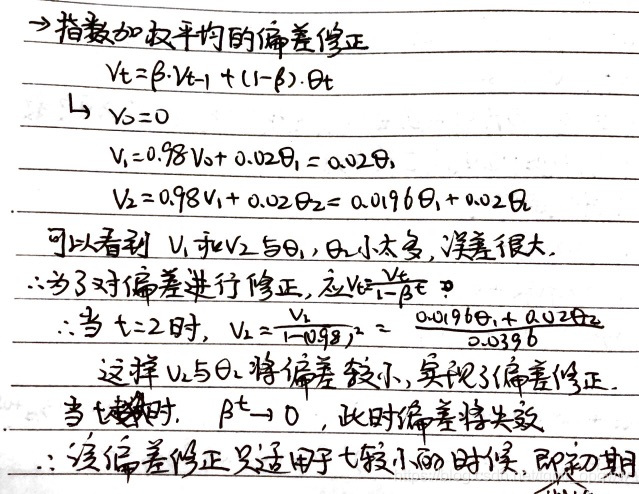 →指数加权平均的偏差修正
Vt=β·Vt-1+(1-β)·θt
↳ V0=0
V1=0.98V0+0.02θ1=0.02θ1
V2=0.98V1+0.02θ2=0.0196θ1+0.02θ2
可以看到 V1和V2与θ1,θ2小太多,误差很大.
∴为了对偏差进行修正,应Vt=Vt/(1-β^t)
∴当t=2时, V2=V2/(1-(0.98)^2)=(0.0196θ1+0.02θ2)/0.0396
这样V2与θ2将偏差较小,实现了偏差修正.
当t 时. β^t→0,此时偏差将失效
∴该偏差修正只适用于t较小的时候,即初期